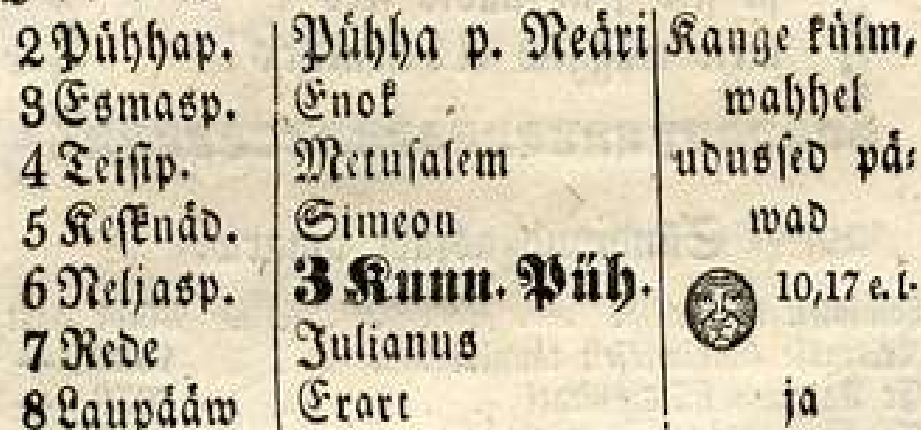 2 Pühhap. Pühha p. Neäri Kange külm,
3 Esmasp. Enok wahhel
4 Teisip. Metusalem udussed pä-
5 Kesknäd. Simeon wad
6 Neljasp. 3 Kunn. Püh. 10,17 e. l.
7 Rede Julianus
8 Laupääw Erart ja